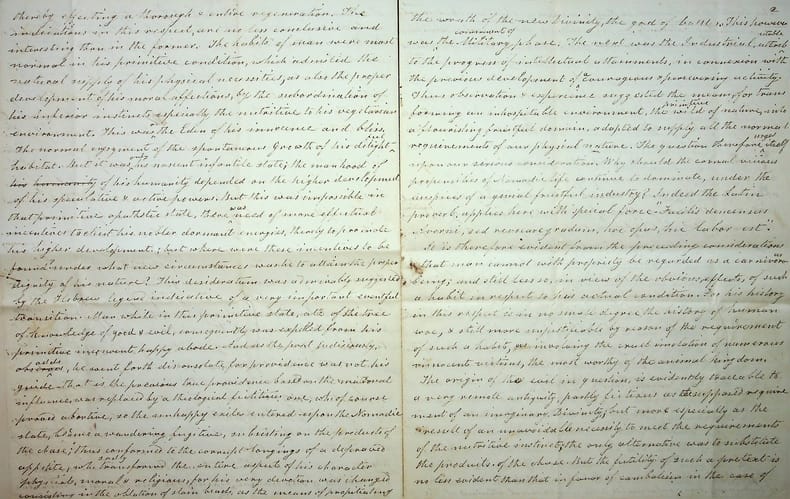 thereby effecting a thorough & entire regeneration. The
indications in this respect, are no less conclusive and
interesting than in the former. The habits of man were most
normal in his primitive condition, which admitted the
natural supply of his physical necessities, as also the proper
development of his moral affections, by the subordination of
his inferior instincts especially the nutritive to his vegetarian
environment. This was the Eden of his innocence and bliss,
the normal enjoyment of the spontaneous growth of his delight-
habitat. But it was only his nascent infantile state; the manhood of
his humanity depended on the higher development
of his speculative & active powers. But this was impossible in
that primitive apathetic state, there was need of more effectual
incentives to elicit his nobler dormant energies, thereby to promote
his higher development; but where were these incentives to be
found under what new circumstances was he to attain the proper
dignity of his nature? This desideratum was admirably suggested
by the Hebrew legend indicative of a very important eventful
transition. Man while in the primitive state, ate of the tree
of knowledge of good & evil, consequently was expelled from his
primitive innocent, happy abode. And as the poet judiciously,
adds, he went forth disconsolate for providence was not his
guide. That is the precious true providence based on the maternal
influence, was replaced by a theological fictitious one, which of course
proved abortive, so the unhappy exiles entered upon the Nomadic
state, a wandering fugitive, subsisting on the products of
the chase; thus conformed to the corrupt longings of a depraved
appetite, who sadly transformed the entire aspect of his character
physical, moral & religious, for his very devotion was changed
consisting in the oblation of slain beasts, as the means of propitiating
2
the wrath of the new Divinity, the god of battles. This however
was the commencement of Military phase. The next was the Industrial, attributable
to the progress of intellectual attainments, in connexion with
the previous development of a courageous & persevering activity.
Thus observation & experience suggested the means for trans
forming an inhospitable environment, the primitive wild of nature, into
a flourishing fruitful domain, adapted to supply all the normal
requirements of our physical nature. The question therefore itself
upon our serious consideration. Why should the carnal vicious
propensities of Nomadic life continue to dominate, under the
auspices of a genial fruitful industry? Indeed the Latin
proverb, applies here with special force. Facilis decensus
Averni, sed revocare gradum, hoc opus, hic labor est.
It is therefore evident from the preceding considerations
that man cannot with propriety be regarded as a carnivorous
being; and still less so, in view of the obvious effects, of such
a habit in respect to his actual condition. For his history
in this respect is in no small degree the history of human
woe, & still more unjustifiable by reason of the requirement
of such a habit, as involving the cruel immolation of numerous
innocent victims, the most worthy of the animal kingdom.
The origin of the evil in question, is evidently traceable to
a very remote antiquity, partly fictitious as the supposed require
ment of an imaginary Divinity, but more especially as the
result of an unavoidable necessity to meet the requirements
of the nutritive instinct; the only alternative was to substitute
the products of the chase. But the futility of such a pretext is
no less evident than that in favor of cannibalism in the case of